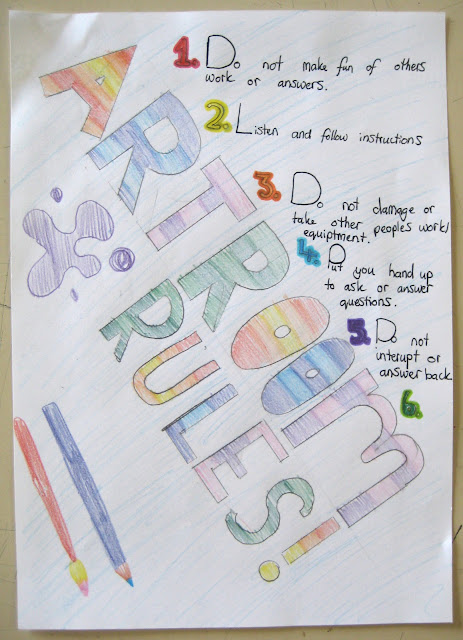 ART ROOM
RULES!
1. Do not make fun of others
work or answers.
2. Listen and follow instructions
3. Do not damage or
take other peoples work/
equiptment.
4. Put you hand up
to ask or answer
questions.
5. Do not
interupt or
answer back
6.